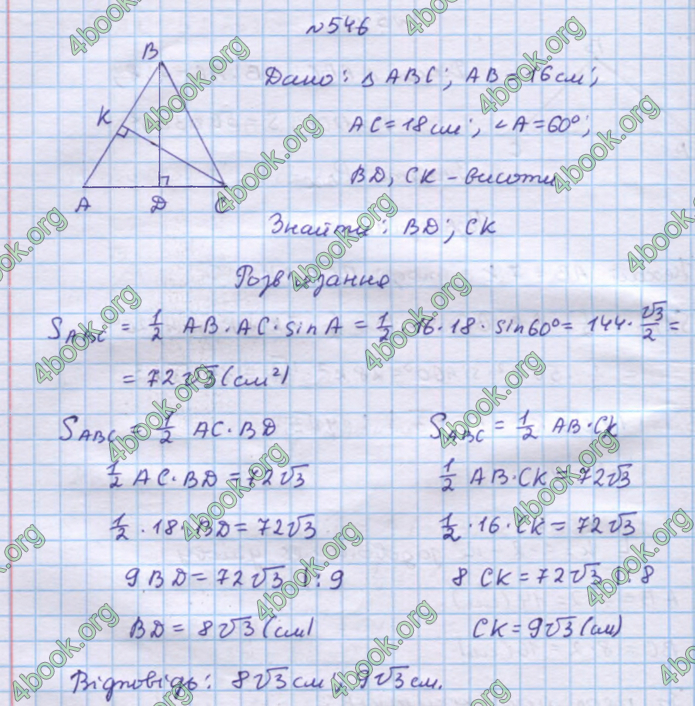 №546
B
K
A
D
C
Дано: △ABC; AB = 16 см;
AC = 18 см; ∠A = 60°;
BD, CK – висоти
Знайти: BD; CK
Розв'язання
S_ABC = 1/2 AB · AC · sin A = 1/2 · 16 · 18 · sin 60° = 144 · √3/2 =
= 72√3 (см²)
S_ABC = 1/2 AC · BD
1/2 AC · BD = 72√3
1/2 · 18 · BD = 72√3
9 BD = 72√3 | : 9
BD = 8√3 (см)
S_ABC = 1/2 AB · CK
1/2 AB · CK = 72√3
1/2 · 16 · CK = 72√3
8 CK = 72√3 | : 8
CK = 9√3 (см)
Відповідь: 8√3 см; 9√3 см.
4book.org